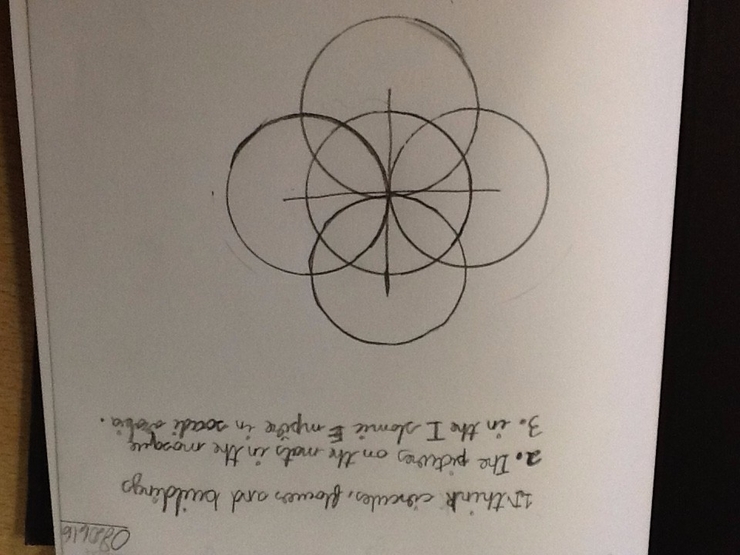 1. I think circules, flowes and buildings
2. The pictures on the mats in the mosque
3. in the Islamic Empire in soadi arabia.